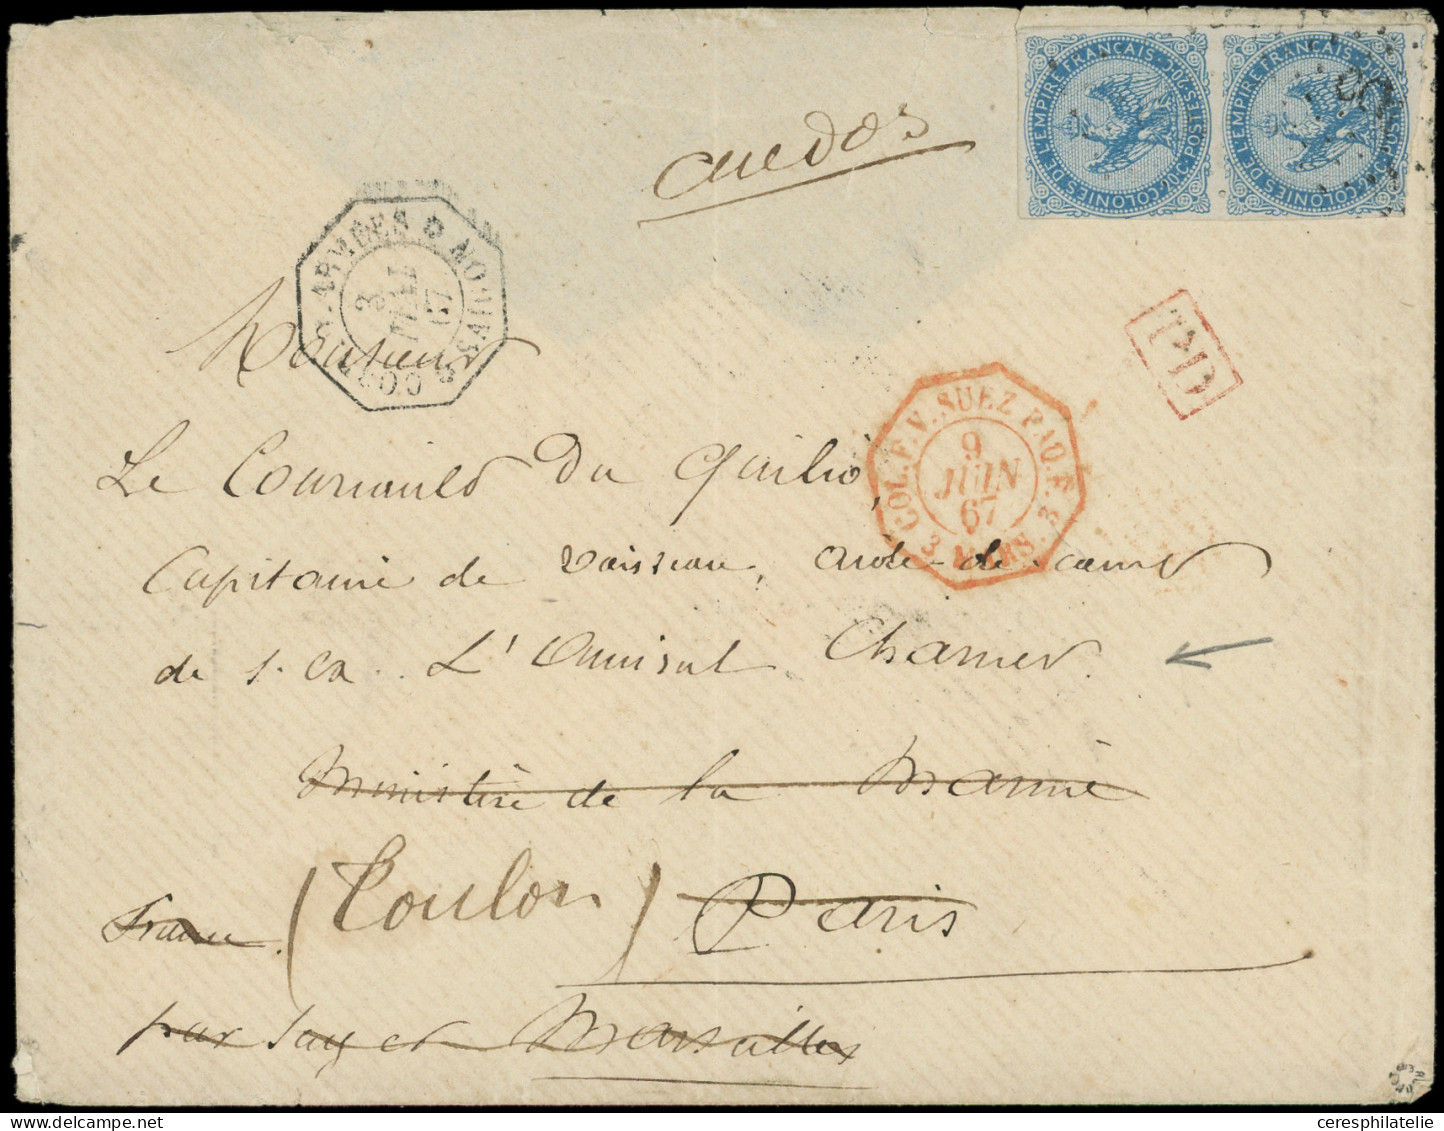 COLONIES DE L'EMPIRE FRANÇAIS · POSTES · 20 C.
COLONIES DE L'EMPIRE FRANÇAIS · POSTES · 20 C.
au dos
ARMÉES
3
67
PD
COL. F. V. SUEZ PAQ. F.
9
JUIN
67
3 MARS. 3
Monsieur
Le Courriault Du Quilio,
Capitaine de Vaisseau, aide-de-camp
de S. Ex. L'Amiral Charner
Ministère de la Marine
France. (Toulon) Paris
par Suez et Marseille
ceresphilatelie